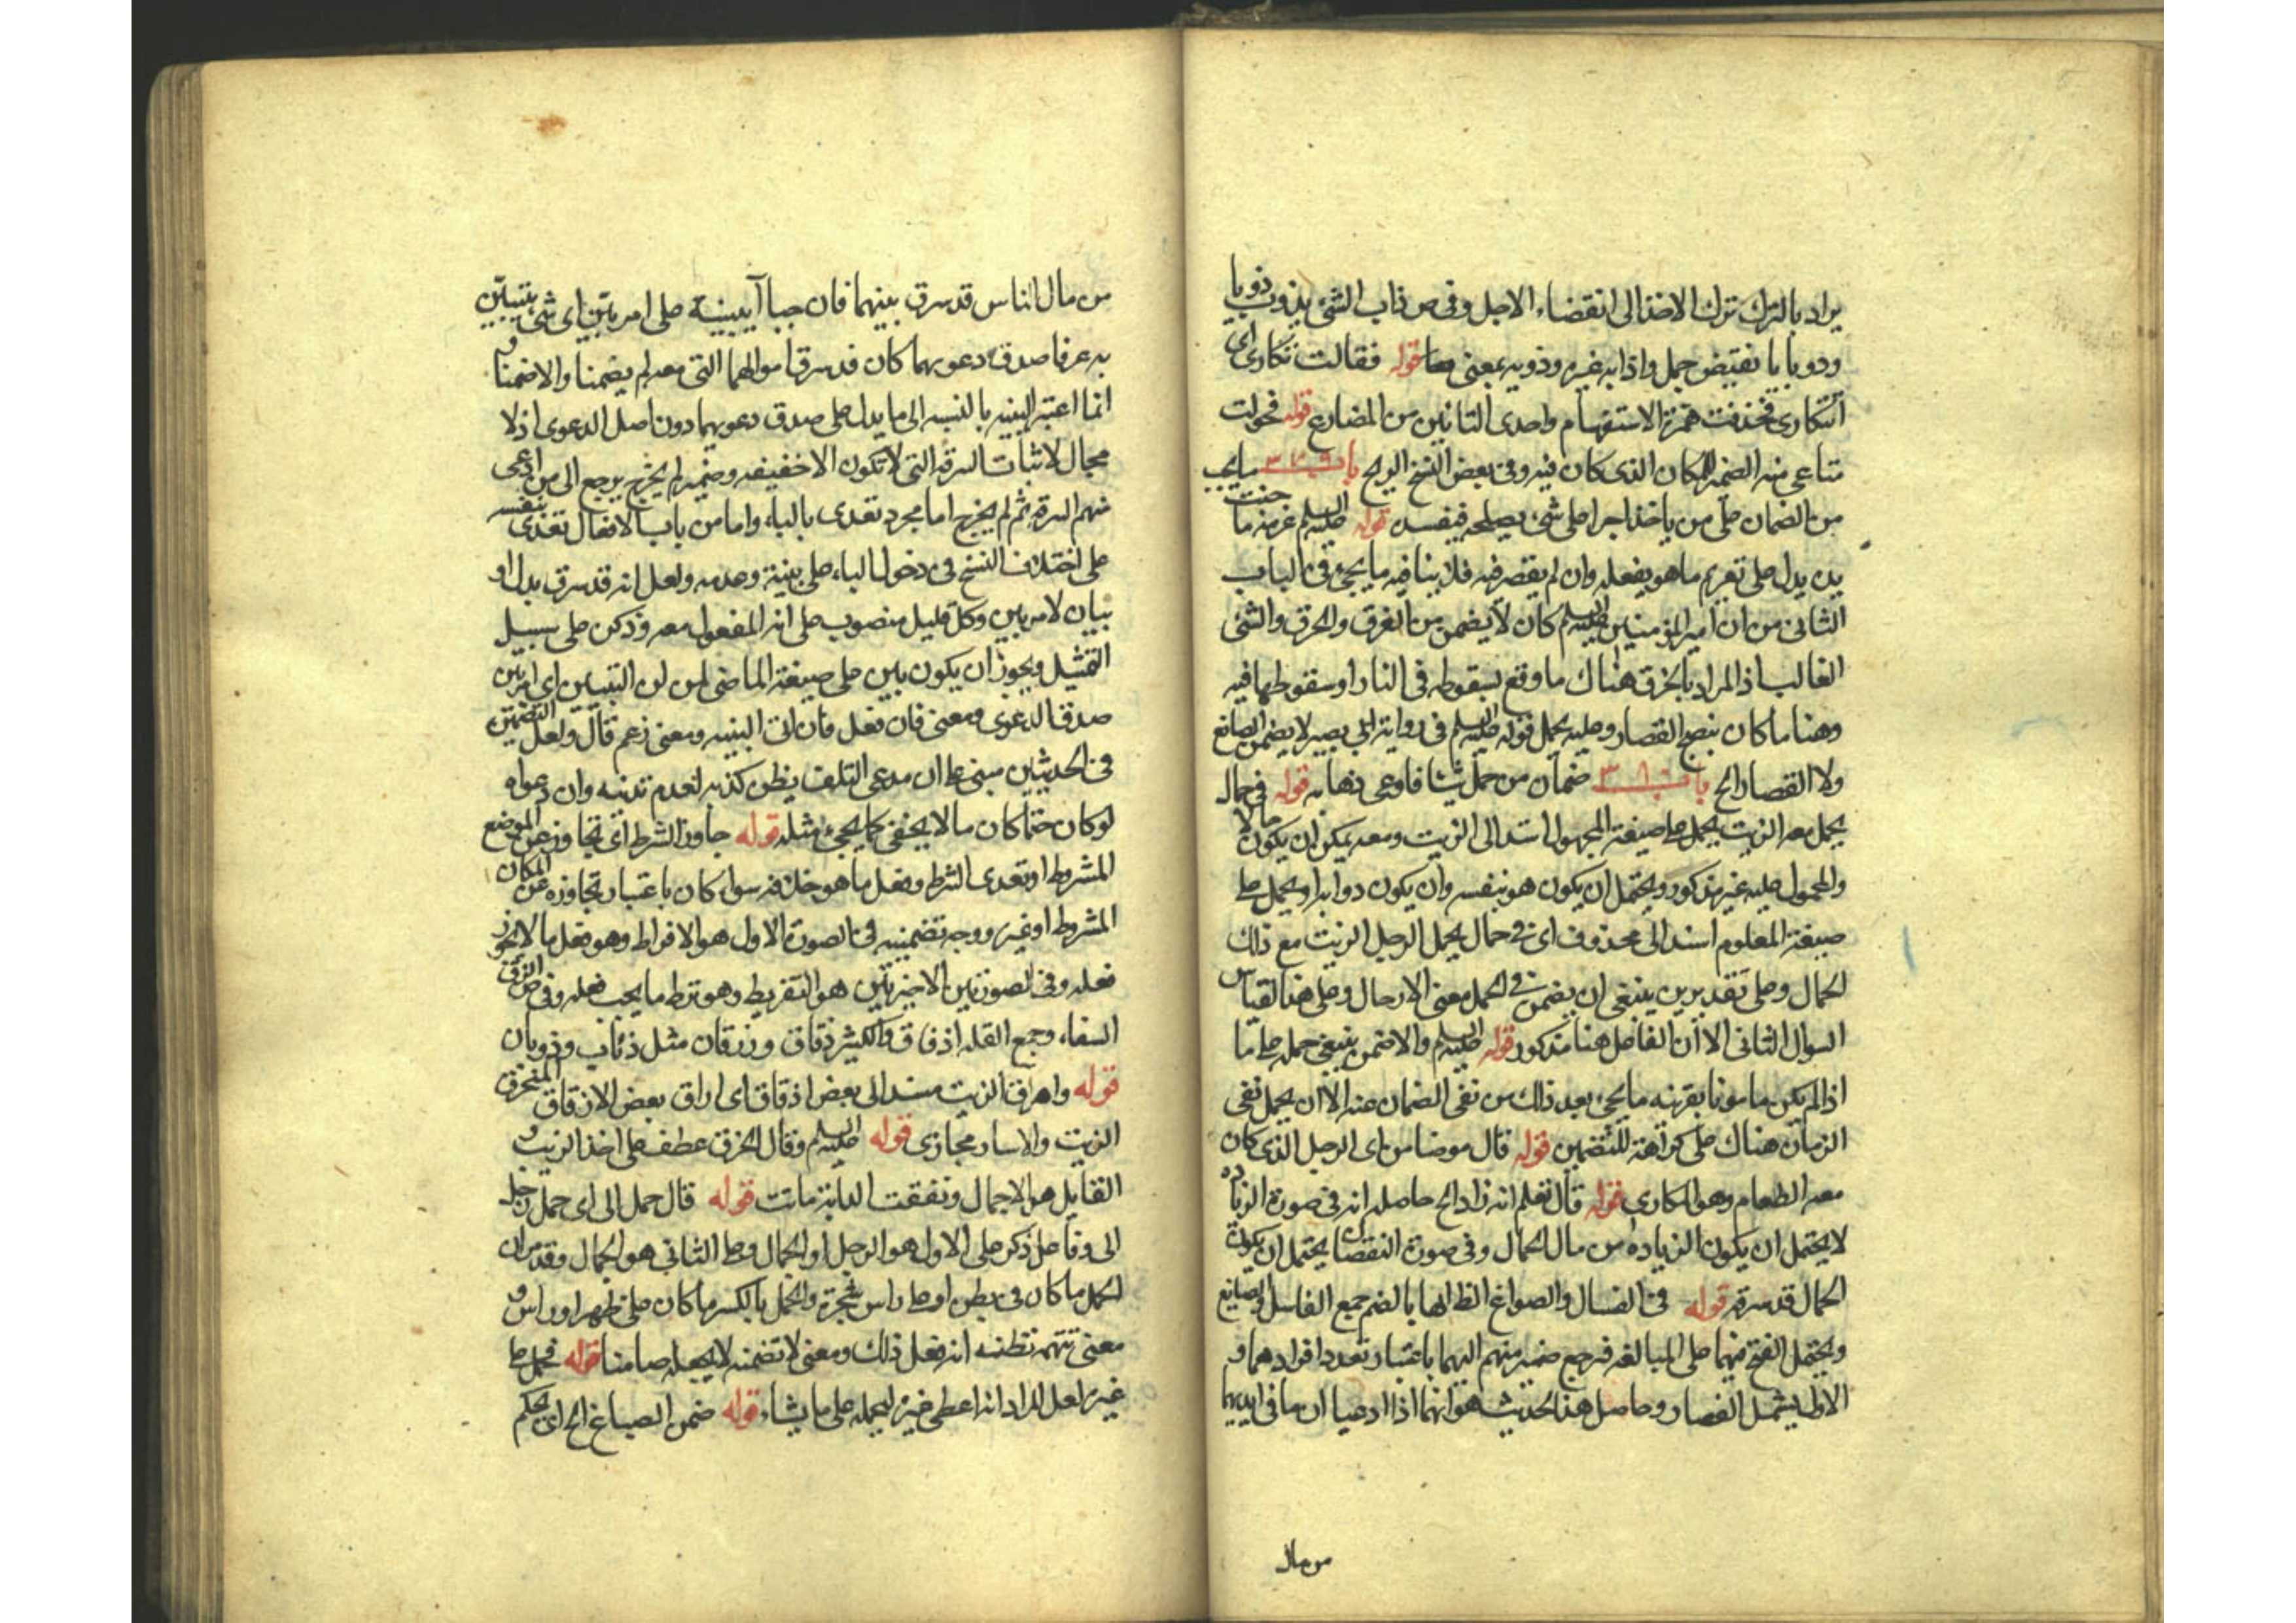 يراد بالترك ترك الاخذ الى انقضاء الاجل وفى ص ذاب الشئ يذوب ذوبا
وذوبا با نقيض جمل واذابه غيره وذوبه بمعنى قوله فقالت تكارى اى
أتتكارى فحذفت همزة الاستفهام واحدى التائين من المضارع قوله فحولت
متاعى منه الضمير للمكان الذى كان فيه وفى بعض النسخ الريح باب ما يجب
من الضمان على من ياخذ اجرا على شئ يصلحه فيفسده قوله عليه السلم غرمه ما جنت
يده يدل على تغريم ما هو بفعله وان لم يقصر فيه فلا ينافيه ما يجئ فى الباب
الثانى من ان امير المؤمنين عليه السلم كان لا يضمن من الغرق والحرق والشئ
الغالب اذ المراد بالحرق هناك ما وقع بسقوطه فى النار او سقوطها فيه
وهنا ما كان بنصح القصار وعليه يحمل قوله عليه السلم فى رواية ابى بصير لا يضمن الصائغ
ولا القصار الخ باب ٣٨٦ ضمان من حمل شيئا فادعى ذهابه قوله فى حمال
يحمل معه الزيت يحمل على صيغة المجهول اسند الى الزيت ومعه يمكن ان يكون حالا
والمحمول عليه غير مذكور ويحتمل ان يكون هو بنفسه وان يكون دوابه او يحمل على
صيغة المعلوم اسند الى محذوف اى فى حمال يحمل الرجل الزيت مع ذلك
الحمال وعلى تقديرين ينبغى ان يضمن فى الحمل معنى الارسال وعلى هذا القياس
السوال الثانى الا ان الفاعل هنا مذكور قوله عليه السلم والا ضمن ينبغى حمله على ما
اذا لم يكن مامونا بقرينه ما يجئ بعد ذلك من نفى الضمان عنه الا ان يحمل نفى
الزمان هناك على كراهة للتضمين قوله قال هو ضامن اى الرجل الذى كان
معه الطعام وهو المكارى قوله قال تعلم انه زاد الخ حاصله انه فى صورة الزيادة
لا يحتمل ان يكون الزياده من مال الحمال وفى صورة النقصان يحتمل ان يكون
الحمال قد سرقه قوله فى الغسال والصواغ الظ انها بالضم جمع الغاسل والصايغ
ويحتمل الفتح فيهما على المبالغه فرجع ضمير منهم اليهما باعتبار تعدد افرادهما و
الاول يشمل القصار وحاصل هذا الحديث هو انهما اذا ادعيا ان ما فى ايديهما
من مال
من مال الناس قد سرق بينهما فان جاآ ببينة على امر بيّن اى شئ يتبيّن
به عرفا صدق دعويهما كان قد سرق اموالهما التى معه لم يضمنا والا ضمنا و
انما اعتبر البينه بالنسبه الى ما يدل على صدق دعويهما دون اصل الدعوى اذ لا
مجال لاثبات السرقه التى لا تكون الا خفيفه وضمير لم يخرج يرجع الى من ادعى
منهم السرقه ثم لم يخرج اما مجرد تعدى بالباء واما من باب الافعال تعدى بنفسه
على اختلاف النسخ فى دخول الباء على بينة وعدمه ولعل انه قد سرق بدل او
بيان لامر بين وكل قليل منصوب على انه المفعول معه وذكره على سبيل
التمثيل ويجوز ان يكون بين على صيغة الماضى من التبيين اى امر بين
صدق الدعوى ومعنى فان فعل فان اتى البينه ومعنى زعم قال ولعل التضمين
فى الحديثين مبنى على ان مدعى التلف يظن كذبه لعدم تدينه وان دعواه
لو كان حقا كان مما لا يخفى كما يجئ مثله قوله جاوز الشرط اى تجاوز عن الموضع
المشروط او تعدى الشرط وفعل ما هو خلافه سواء كان باعتبار تجاوزه عن المكان
المشروط او غيره ووجه تضمينه فى الصورة الاول هو الافراط وهو فعل ما لا يجوز
فعله وفى الصورتين الاخيرتين هو التفريط وهو ترك ما يجب فعله وفى ص الزق
السقاء وجمع القله ازقاق والكثير زقاق وزقان مثل ذئاب وذوبان
قوله واهراق الزيت مسند الى بعض ازقاق اى اراق بعض الازقاق المنخرق
الزيت والاسناد مجازى قوله عليه السلم وقال انخرق عطف على اخذ الزيت و
القايل هو الاجمال ونفقت الدابة ماتت قوله قال حمل ابى اى حمل رجل
ابى وفاعل ذكره على الاول هو الرجل او الحمال وعلى الثانى هو الحمال وقد مر ان
الحمل ما كان فى بطن او على راس شجرة والحمل بالكسر ما كان على ظهر او راس و
معنى تتهمه تظنه انه فعل ذلك ومعنى لا تضمنه لا يجعله ضامنا قوله فحمل على
غيره لعل المراد انه اعطى غيره ليحمله على ما يشاء قوله ضمن الصباغ الخ اى يحكم